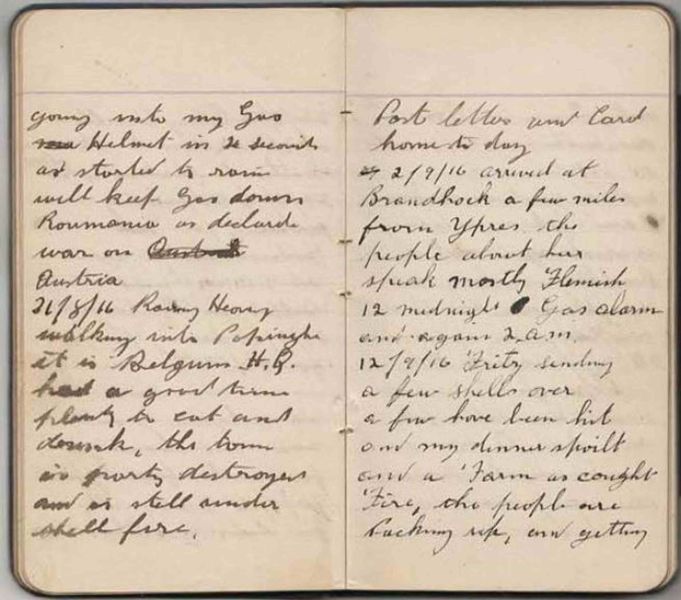 going into my Gas
Helmet in seconds
as started to rain
will keep Gas down
Roumania as declard
war on
Austria
Raing Heavy
walking into Popinghe
it is Belgium H.Q.
had a good time
plenty to eat and
drunk, the town
is party destroyed
and is still under
shell fire.
Post letter and Card
home to day
2/9/16 arrived at
Brandhock a few miles
from Ypres the
people about her
speak mostly Flemish
12 midnight Gas alarm
and again 2 am
12/9/16 Fritz sending
a few shells over
a few have been hit
and my dinner spoilt
and a Farm as cought
Fire, the people are
Packing up, and getting